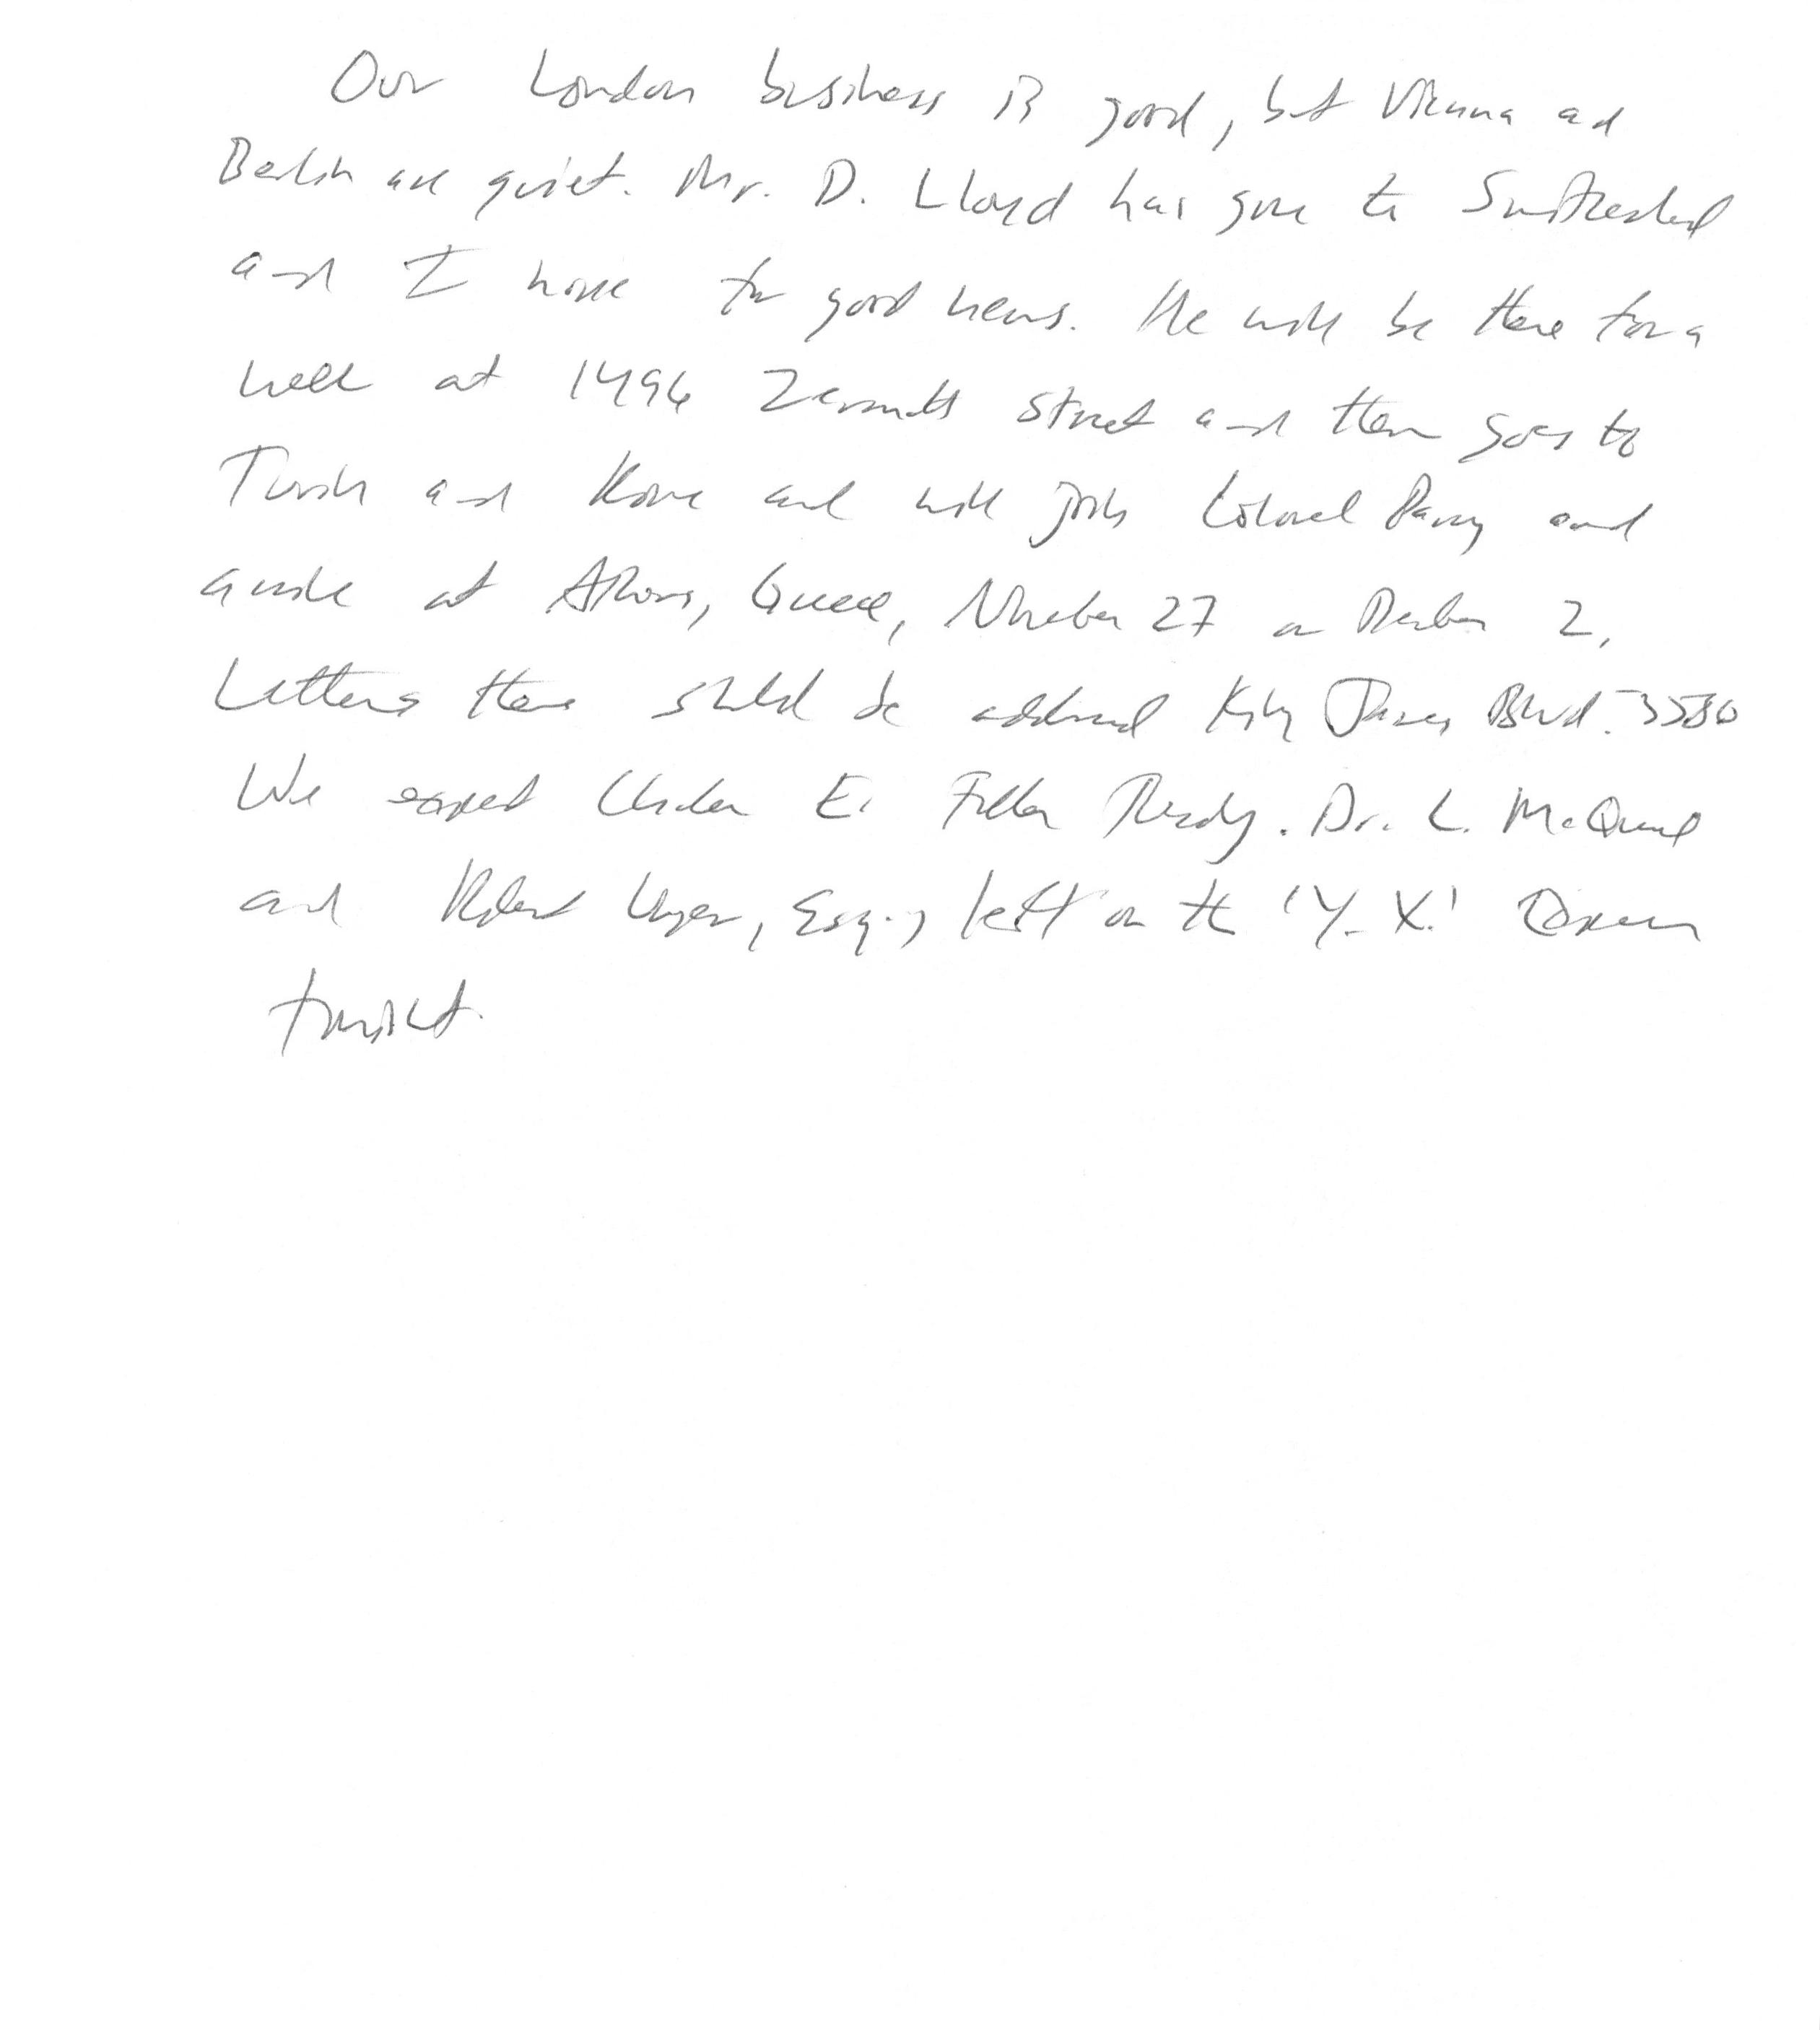 Our London business is good, but Vienna and
Berlin are quiet. Mr. D. Lloyd has gone to Switzerland
and I hope for good news. He will be there for a
week at 1496 Zermott Street and then goes to
Turin and Rome and will join Colonel Parry and
arrive at Athens, Greece, November 27 or December 2.
Letters there should be addressed King James Blvd. 3580
We expect Charles E. Fuller Tuesday. Dr. L. McQuaid
and Robert Unger, Esq., left on the 'Y. X.' Express
tonight.